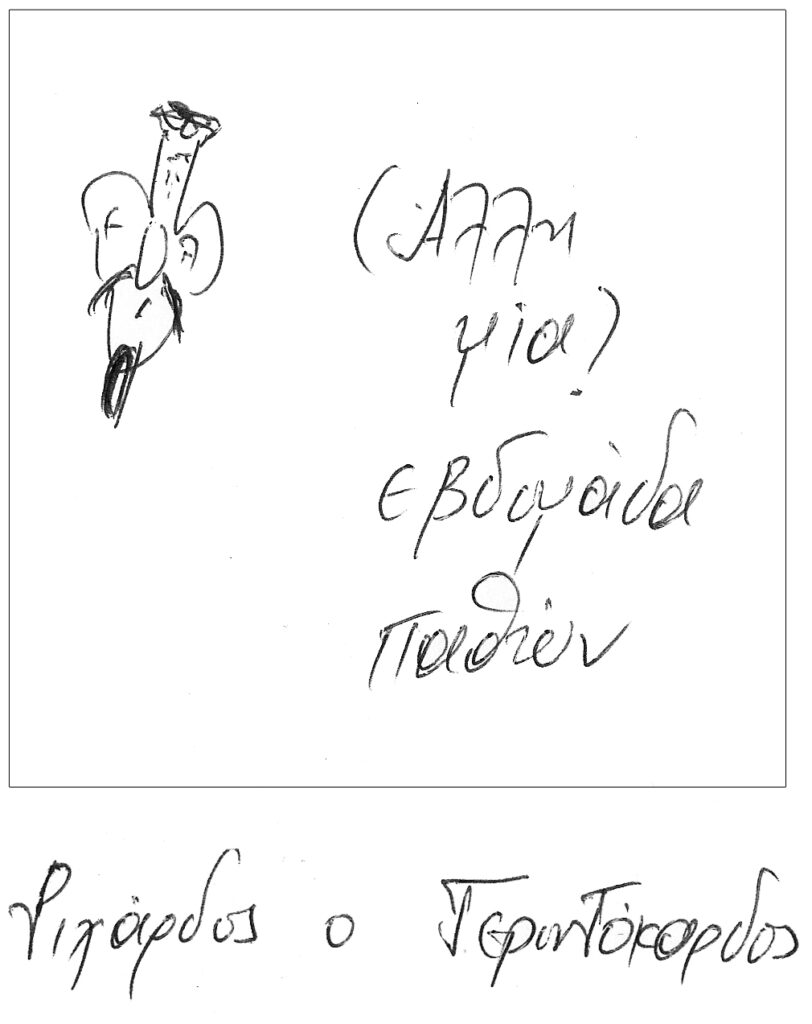 (Άλλη
μία)
εβδομάδα
παθών
Ριχάρδος ο Γεροντόκαρδος